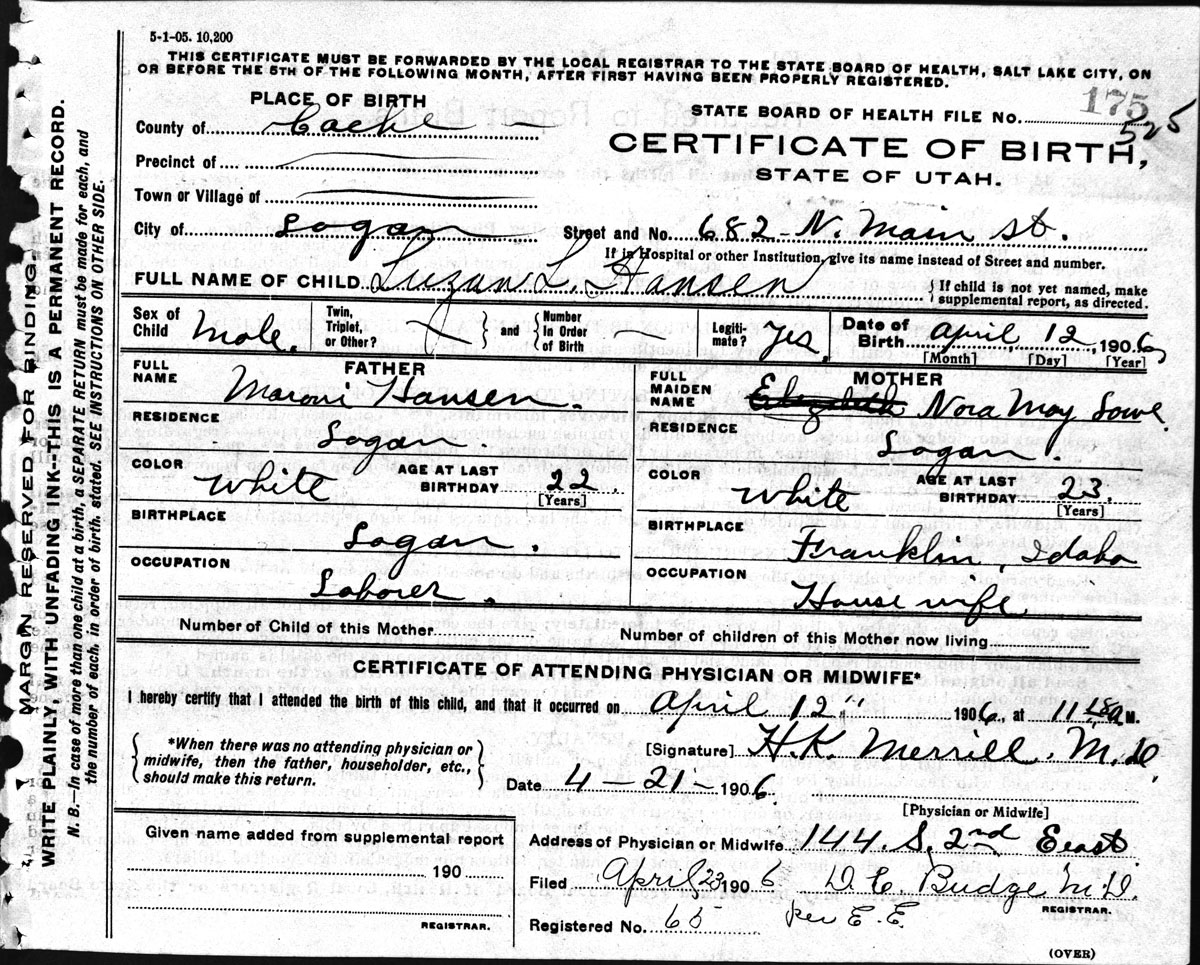 5-1-05. 10,200
THIS CERTIFICATE MUST BE FORWARDED BY THE LOCAL REGISTRAR TO THE STATE BOARD OF HEALTH, SALT LAKE CITY, ON
OR BEFORE THE 5TH OF THE FOLLOWING MONTH, AFTER FIRST HAVING BEEN PROPERLY REGISTERED.
PLACE OF BIRTH
STATE BOARD OF HEALTH FILE No. 175
525
County of Cache
CERTIFICATE OF BIRTH,
STATE OF UTAH.
Precinct of
Town or Village of
City of Logan Street and No. 682 N. Main St.
If in Hospital or other Institution, give its name instead of Street and number.
FULL NAME OF CHILD Luzan L. Hansen { If child is not yet named, make supplemental report, as directed.
Sex of Child Male. Twin, Triplet, or Other? } and { Number In Order of Birth Legiti- mate? Yes. Date of Birth April 12, 1906
[Month] [Day] [Year]
FATHER
FULL NAME Maroni Hansen.
RESIDENCE
Logan
COLOR White AGE AT LAST BIRTHDAY 22.
[Years]
BIRTHPLACE
Logan.
OCCUPATION
Laborer.
MOTHER
FULL MAIDEN NAME Elizabeth Nora May Lowe.
RESIDENCE
Logan.
COLOR White AGE AT LAST BIRTHDAY 23.
[Years]
BIRTHPLACE
Franklin, Idaho
OCCUPATION
House wife
Number of Child of this Mother Number of children of this Mother now living
CERTIFICATE OF ATTENDING PHYSICIAN OR MIDWIFE*
I hereby certify that I attended the birth of this child, and that it occurred on April 12" 1906, at 11 M.
{ *When there was no attending physician or
midwife, then the father, householder, etc.,
should make this return. }
[Signature] H.K. Merrill, M.D.
Date 4-21-1906.
[Physician or Midwife]
Given name added from supplemental report
190
REGISTRAR.
Address of Physician or Midwife 144 S. 2nd East
Filed April 23 1906 D.C. Budge M.D.
REGISTRAR.
Registered No. 65 per E.E.
(OVER)
MARGIN RESERVED FOR BINDING
WRITE PLAINLY, WITH UNFADING INK--THIS IS A PERMANENT RECORD.
N. B.—In case of more than one child at a birth, a SEPARATE RETURN must be made for each, and
the number of each, in order of birth, stated. SEE INSTRUCTIONS ON OTHER SIDE.